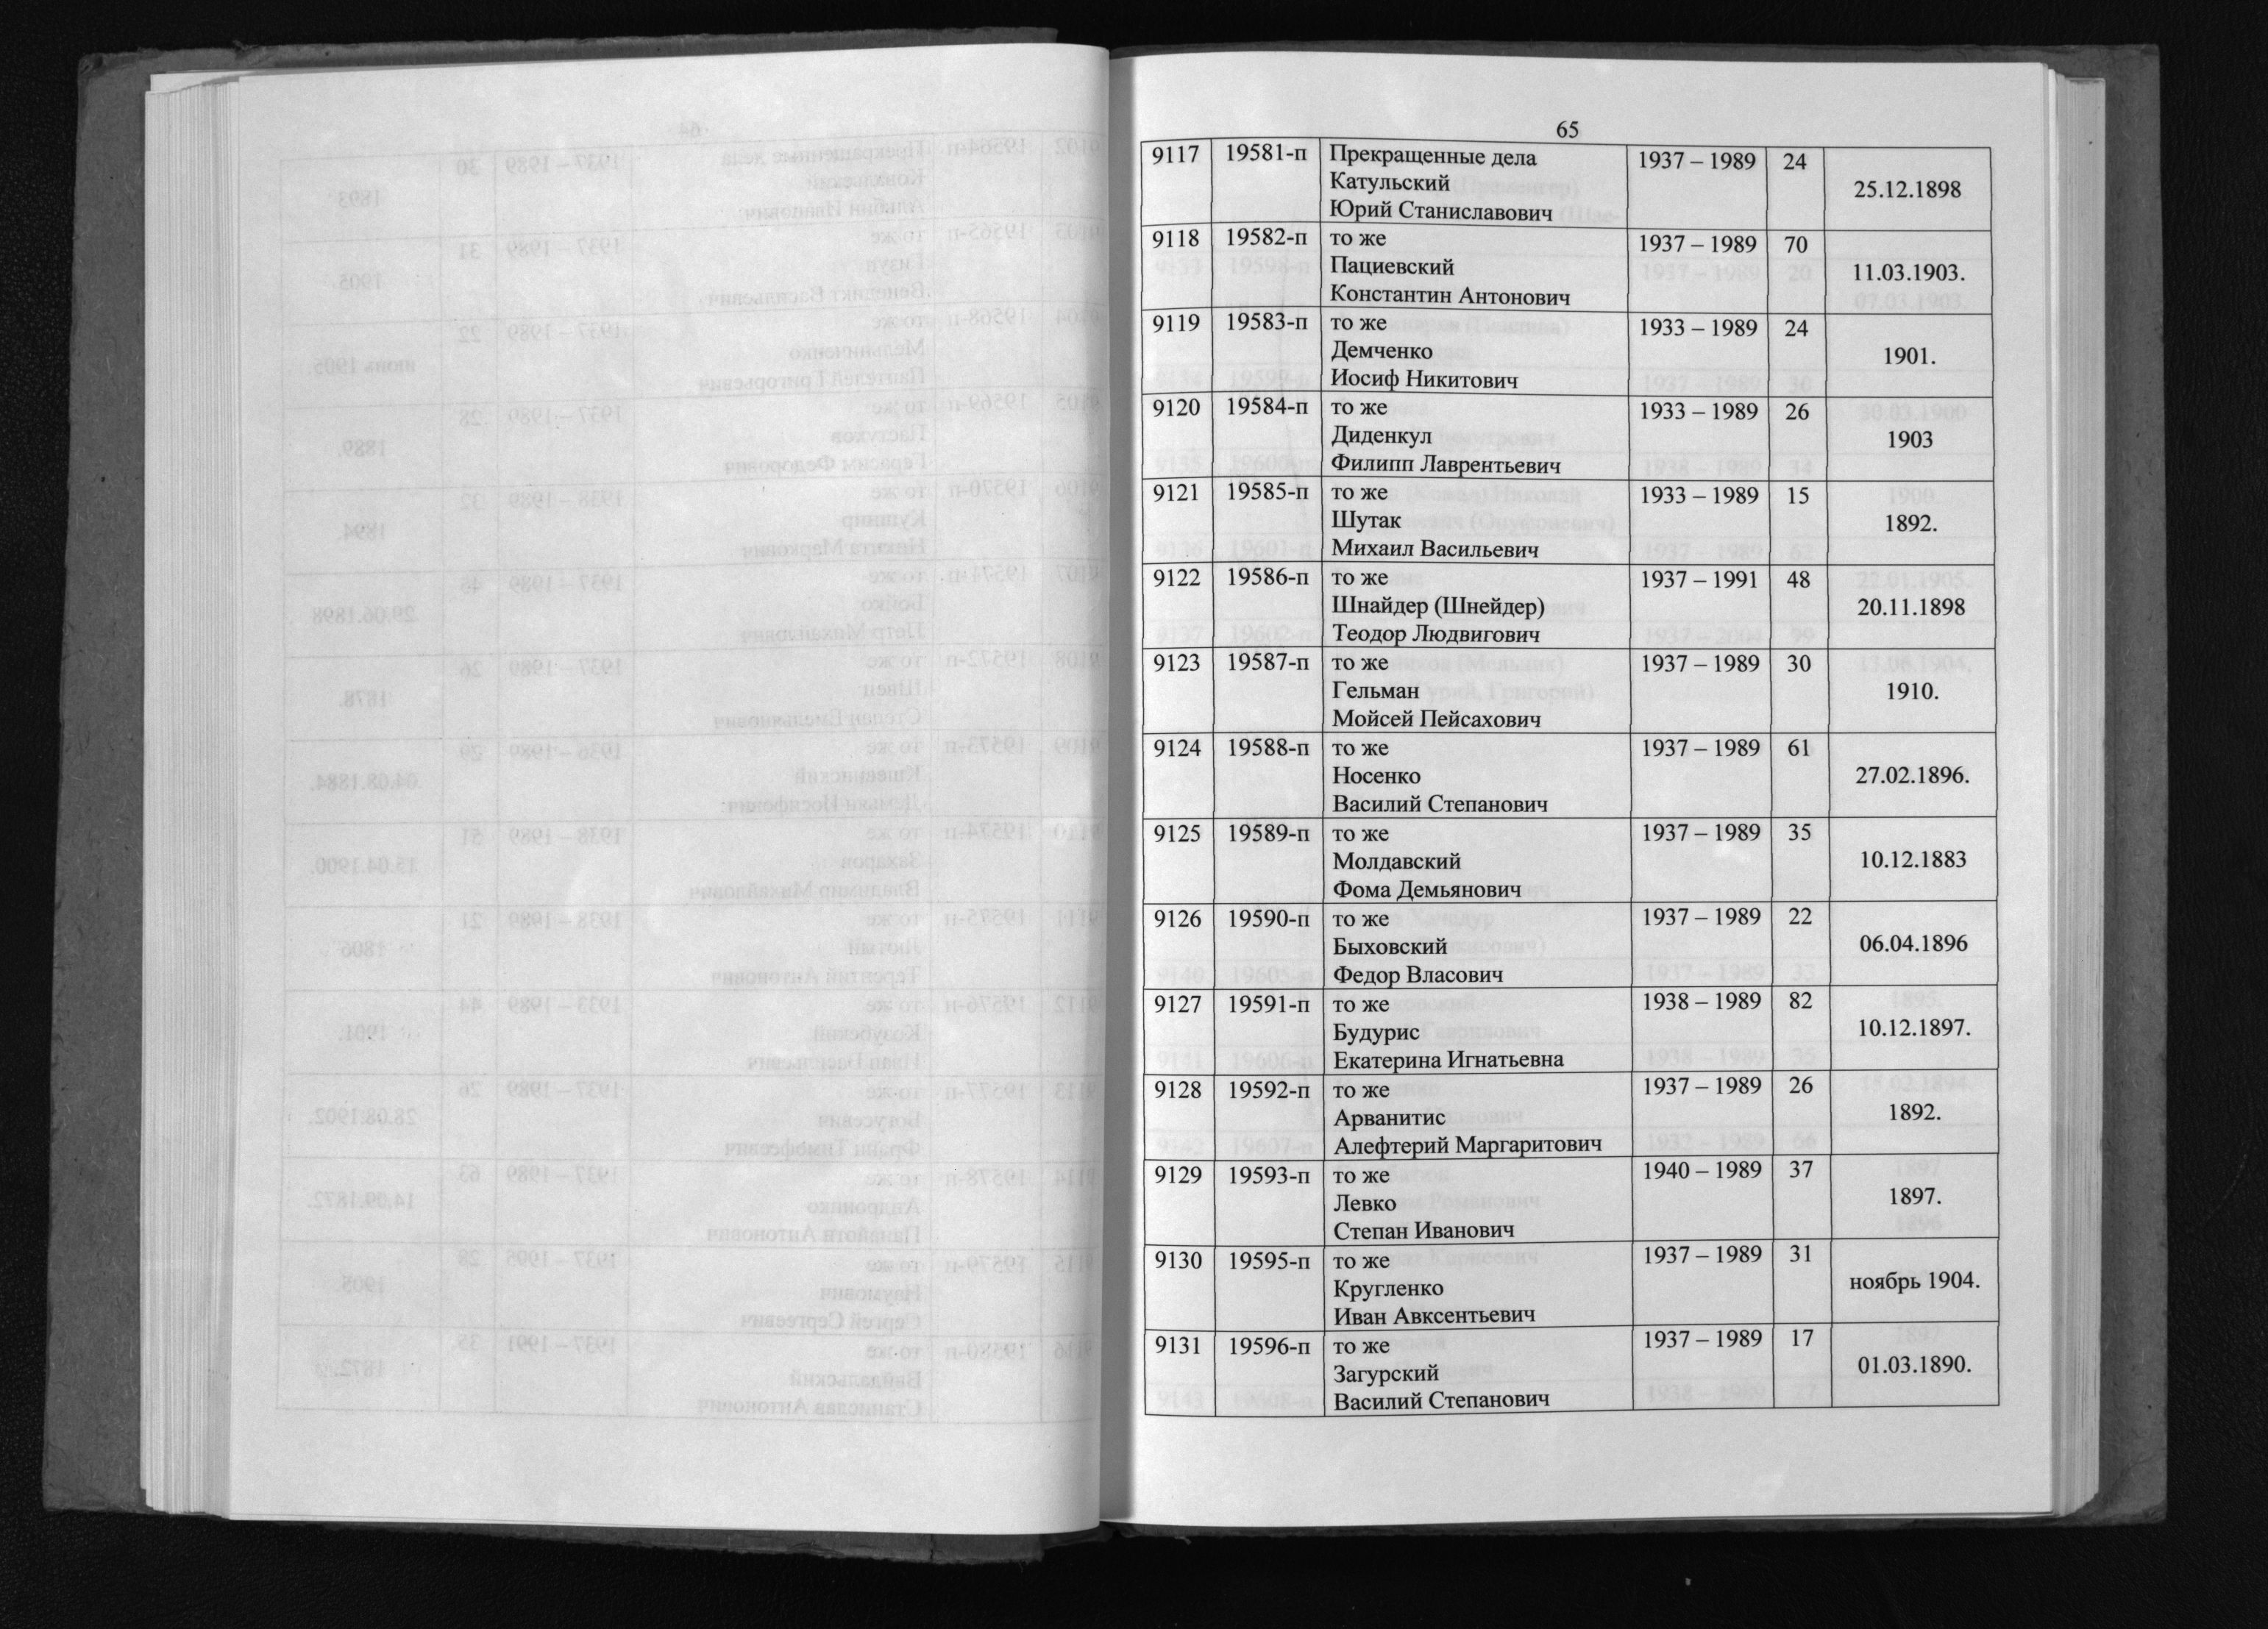 65
9117 19581-п Прекращенные дела 1937 – 1989 24
Катульский
25.12.1898
Юрий Станиславович
9118 19582-п то же 1937 – 1989 70
Пациевский 11.03.1903.
Константин Антонович
9119 19583-п то же 1933 – 1989 24
Демченко 1901.
Иосиф Никитович
9120 19584-п то же 1933 – 1989 26
Диденкул 1903
Филипп Лаврентьевич
9121 19585-п то же 1933 – 1989 15
Шутак 1892.
Михаил Васильевич
9122 19586-п то же 1937 – 1991 48
Шнайдер (Шнейдер) 20.11.1898
Теодор Людвигович
9123 19587-п то же 1937 – 1989 30
Гельман 1910.
Мойсей Пейсахович
9124 19588-п то же 1937 – 1989 61
Носенко 27.02.1896.
Василий Степанович
9125 19589-п то же 1937 – 1989 35
Молдавский 10.12.1883
Фома Демьянович
9126 19590-п то же 1937 – 1989 22
Быховский 06.04.1896
Федор Власович
9127 19591-п то же 1938 – 1989 82
Будурис 10.12.1897.
Екатерина Игнатьевна
9128 19592-п то же 1937 – 1989 26
Арванитис 1892.
Алефтерий Маргаритович
9129 19593-п то же 1940 – 1989 37
Левко 1897.
Степан Иванович
9130 19595-п то же 1937 – 1989 31
Кругленко ноябрь 1904.
Иван Авксентьевич
9131 19596-п то же 1937 – 1989 17
Загурский 01.03.1890.
Василий Степанович